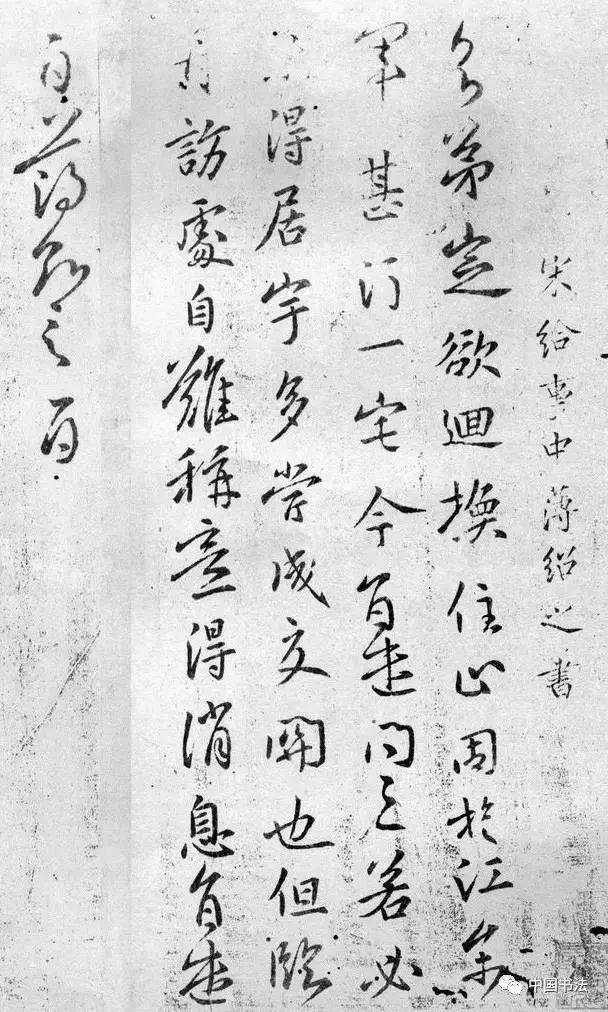 宋給事中薄紹之書
弟定欲迴換住止因於江
軍甚一宅今遣問之若必
得居宇多當成交關也但臨
訪處自難稱意得消息遣
白薄紹之白
中国书法